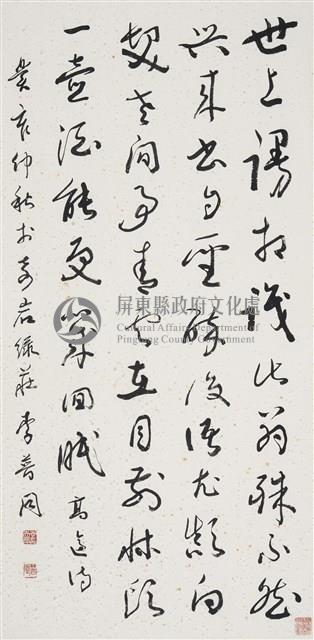 世上謾相識此翁殊不然
興來書自聖醉後語尤顛白
髮老閒事青雲在目前牀頭
一壺酒能更幾回眠 高適詩
癸亥仲秋於奇岩綠莊 李普同
屏東縣政府文化處
Cultural Affairs Department of
Pingtung County Government